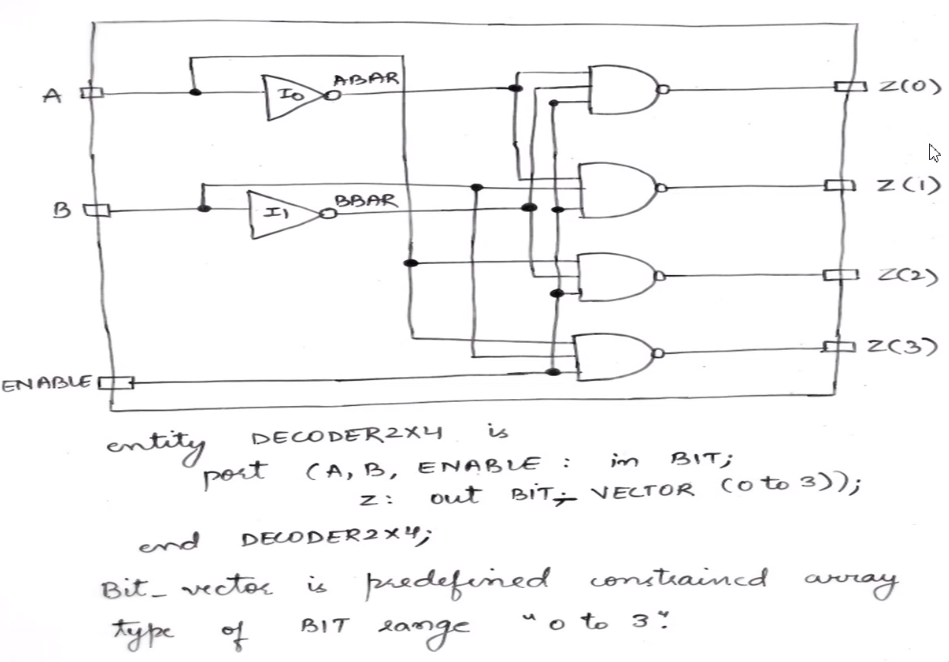 A
I0
ABAR
Z(0)
Z(1)
B
I1
BBAR
Z(2)
Z(3)
ENABLE
entity DECODER2X4 is
port (A, B, ENABLE : in BIT;
Z : out BIT_VECTOR (0 to 3));
end DECODER2X4;
Bit_vector is predefined constrained array
type of BIT range "0 to 3".